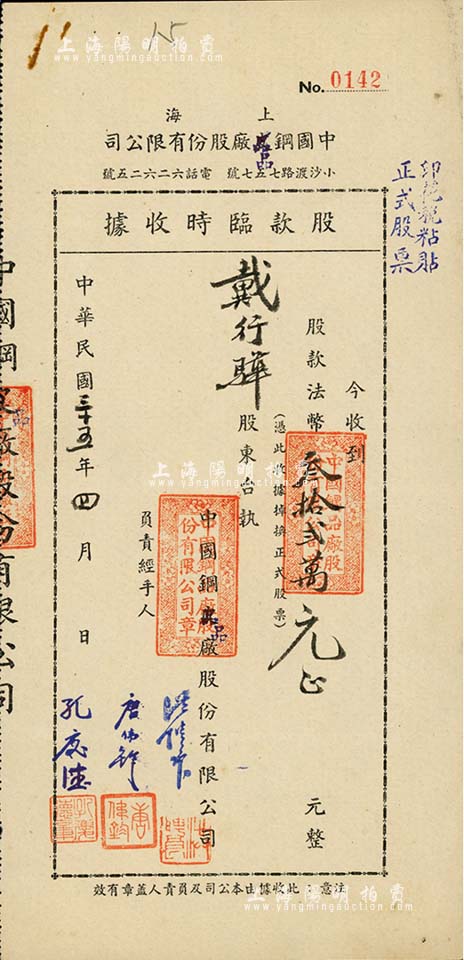 上海陽明拍賣
www.yangmingauction.com
15
No. 0142
上海
中國鋼品廠股份有限公司
小沙渡路七五七號 電話六二六二五號
印花稅粘貼
正式股票
股款臨時收據
今收到
股款法幣叁拾貳萬元正 元整
(憑此收據掉換正式股票)
戴行驊
股東台執
中國鋼品廠股份有限公司
負責經手人
中國鋼品廠股份有限公司章
唐偉鈞
孔慶德
中華民國三十五年四月 日
注意:此收據由本公司及負責人蓋章有效
中國鋼品廠股份有限公司
上海陽明拍賣
www.yangmingauction.com
上海陽明拍賣
www.yangmingauction.com